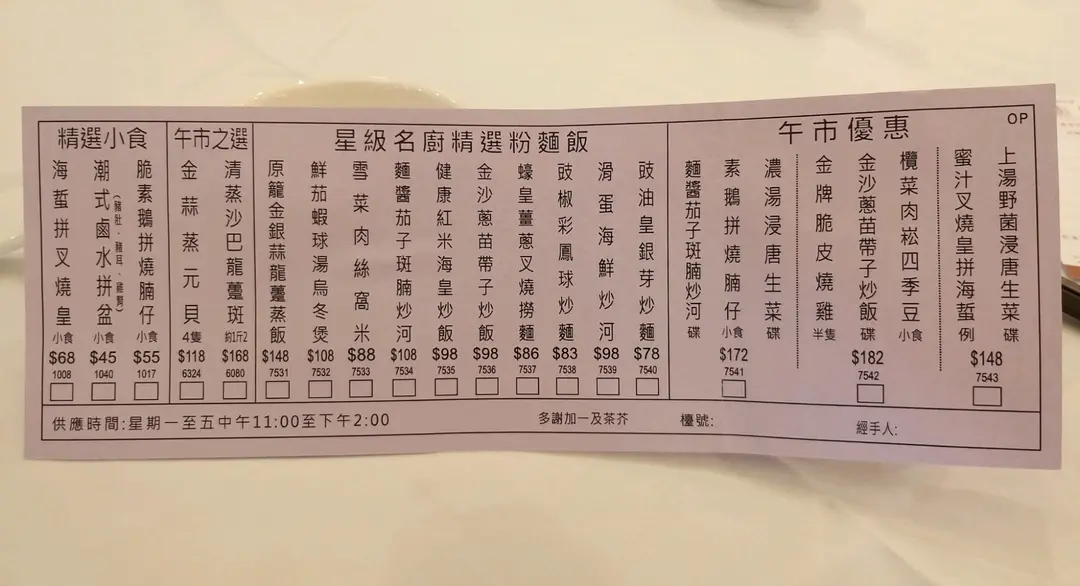 精選小食
海蜇拼叉燒皇
小食
$68
1008
潮式鹵水拼盆
(豬肚、豬耳、雞腎)
小食
$45
1040
脆素鵝拼燒腩仔
小食
$55
1017
午市之選
金蒜蒸元貝
4隻
$118
6324
清蒸沙巴龍躉斑
約1斤2
$168
6080
星級名廚精選粉麵飯
原籠金銀蒜龍躉蒸飯
$148
7531
鮮茄蝦球湯烏冬煲
$108
7532
雪菜肉絲窩米
$88
7533
麵醬茄子斑腩炒河
$108
7534
健康紅米海皇炒飯
$98
7535
金沙蔥苗帶子炒飯
$98
7536
蠔皇薑蔥叉燒撈麵
$86
7537
豉椒彩鳳球炒麵
$83
7538
滑蛋海鮮炒河
$98
7539
豉油皇銀芽炒麵
$78
7540
午市優惠
OP
麵醬茄子斑腩炒河
碟
素鵝拼燒腩仔
小食
濃湯浸唐生菜
碟
$172
7541
金牌脆皮燒雞
半隻
金沙蔥苗帶子炒飯
碟
欖菜肉崧四季豆
小食
$182
7542
蜜汁叉燒皇拼海蜇
例
上湯野菌浸唐生菜
碟
$148
7543
供應時間:星期一至五中午11:00至下午2:00
多謝加一及茶芥
檯號:
經手人: